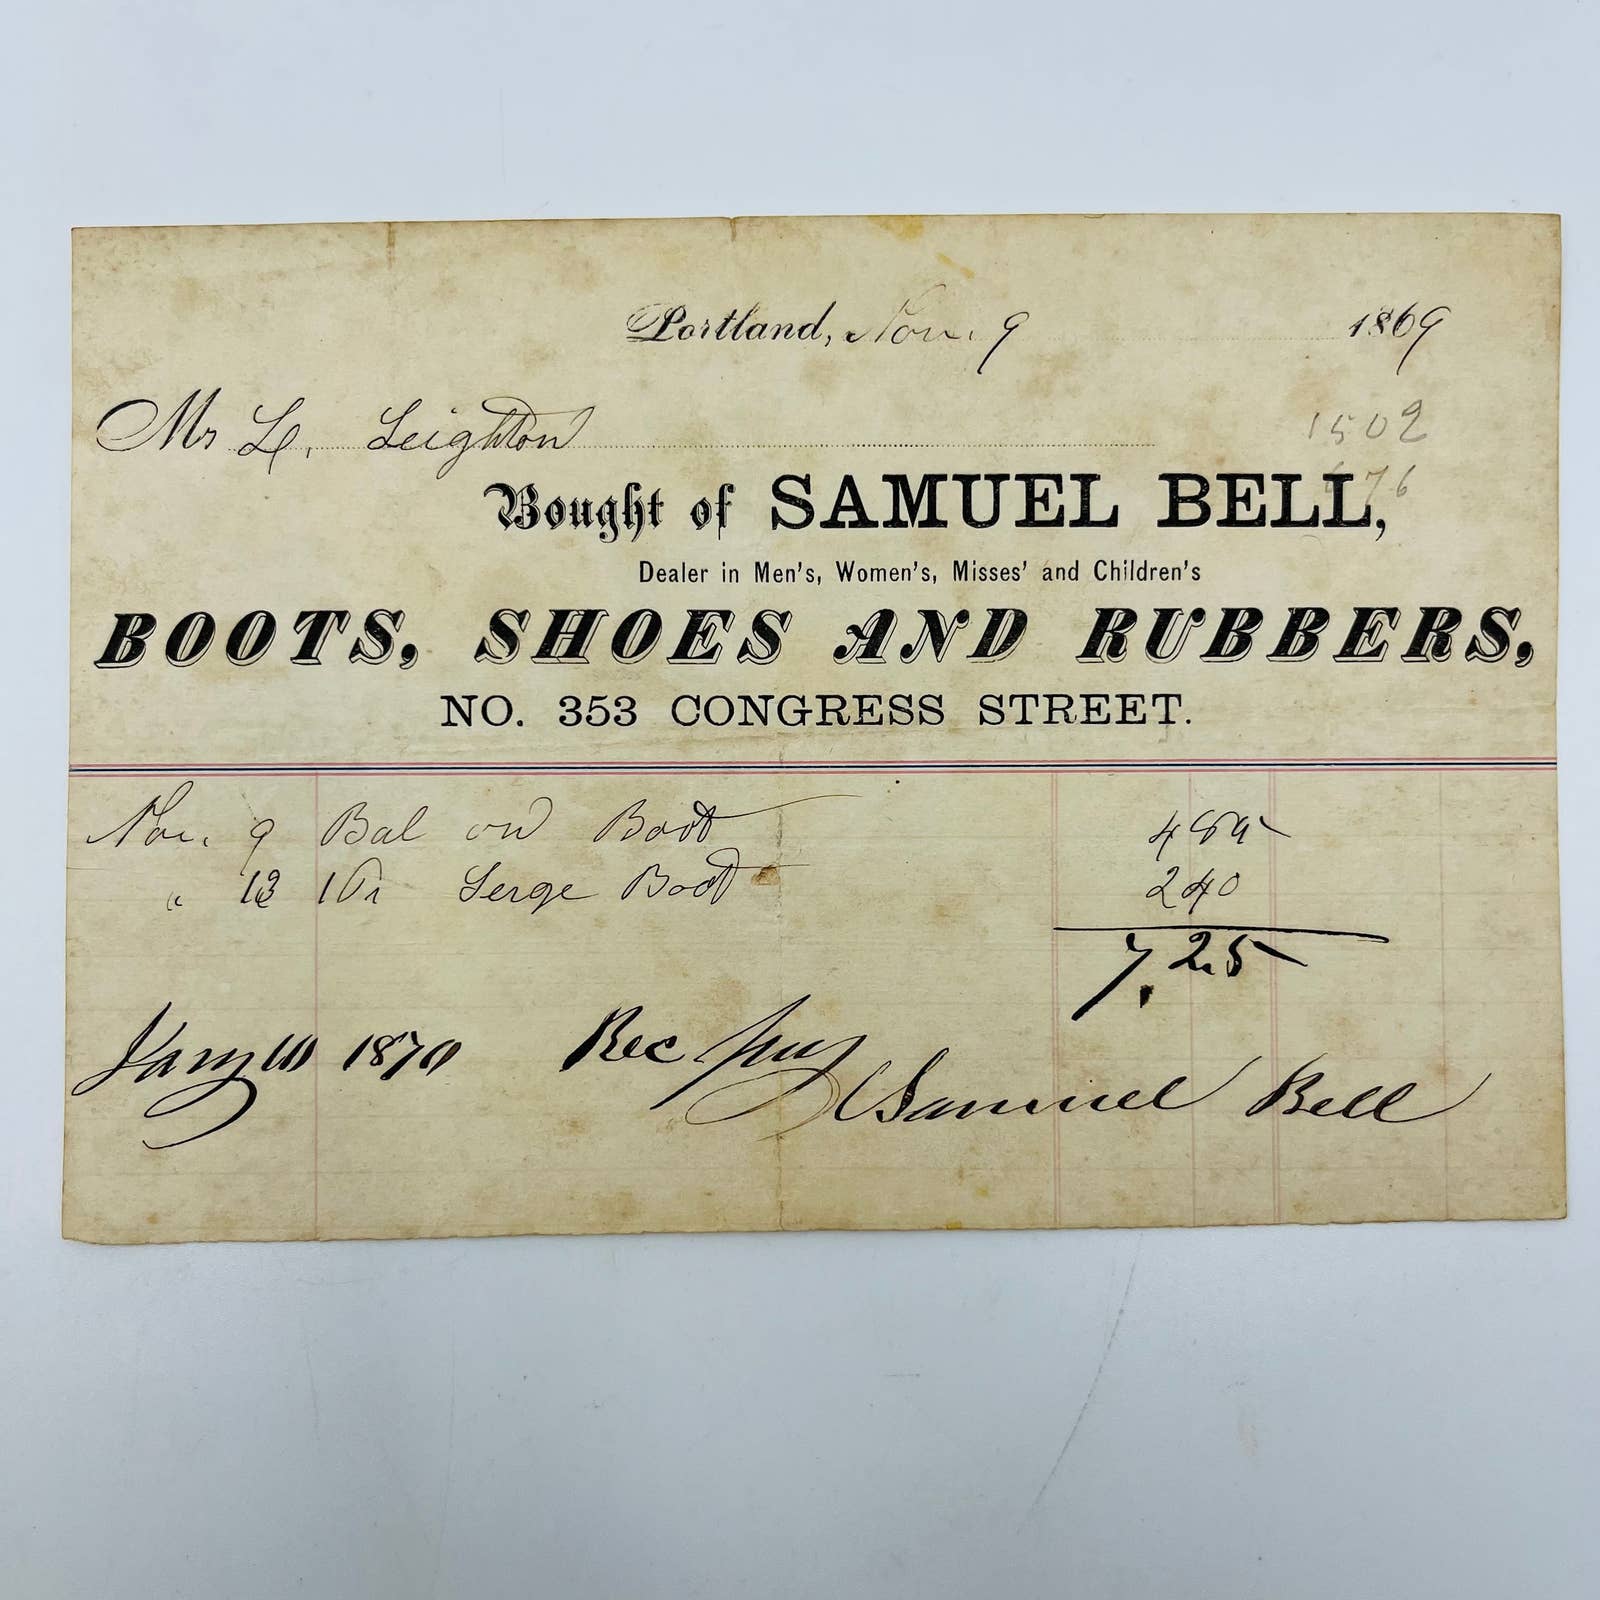 Portland, Nov. 9 1869
Mr L. Leighton
1502
76
Bought of SAMUEL BELL,
Dealer in Men's, Women's, Misses' and Children's
BOOTS, SHOES AND RUBBERS,
NO. 353 CONGRESS STREET.
Nov. 9 Bal on Boot 485
" 13 1 Pr Serge Boot 240
7.25
Jany 10 1870 Rec pay
Samuel Bell